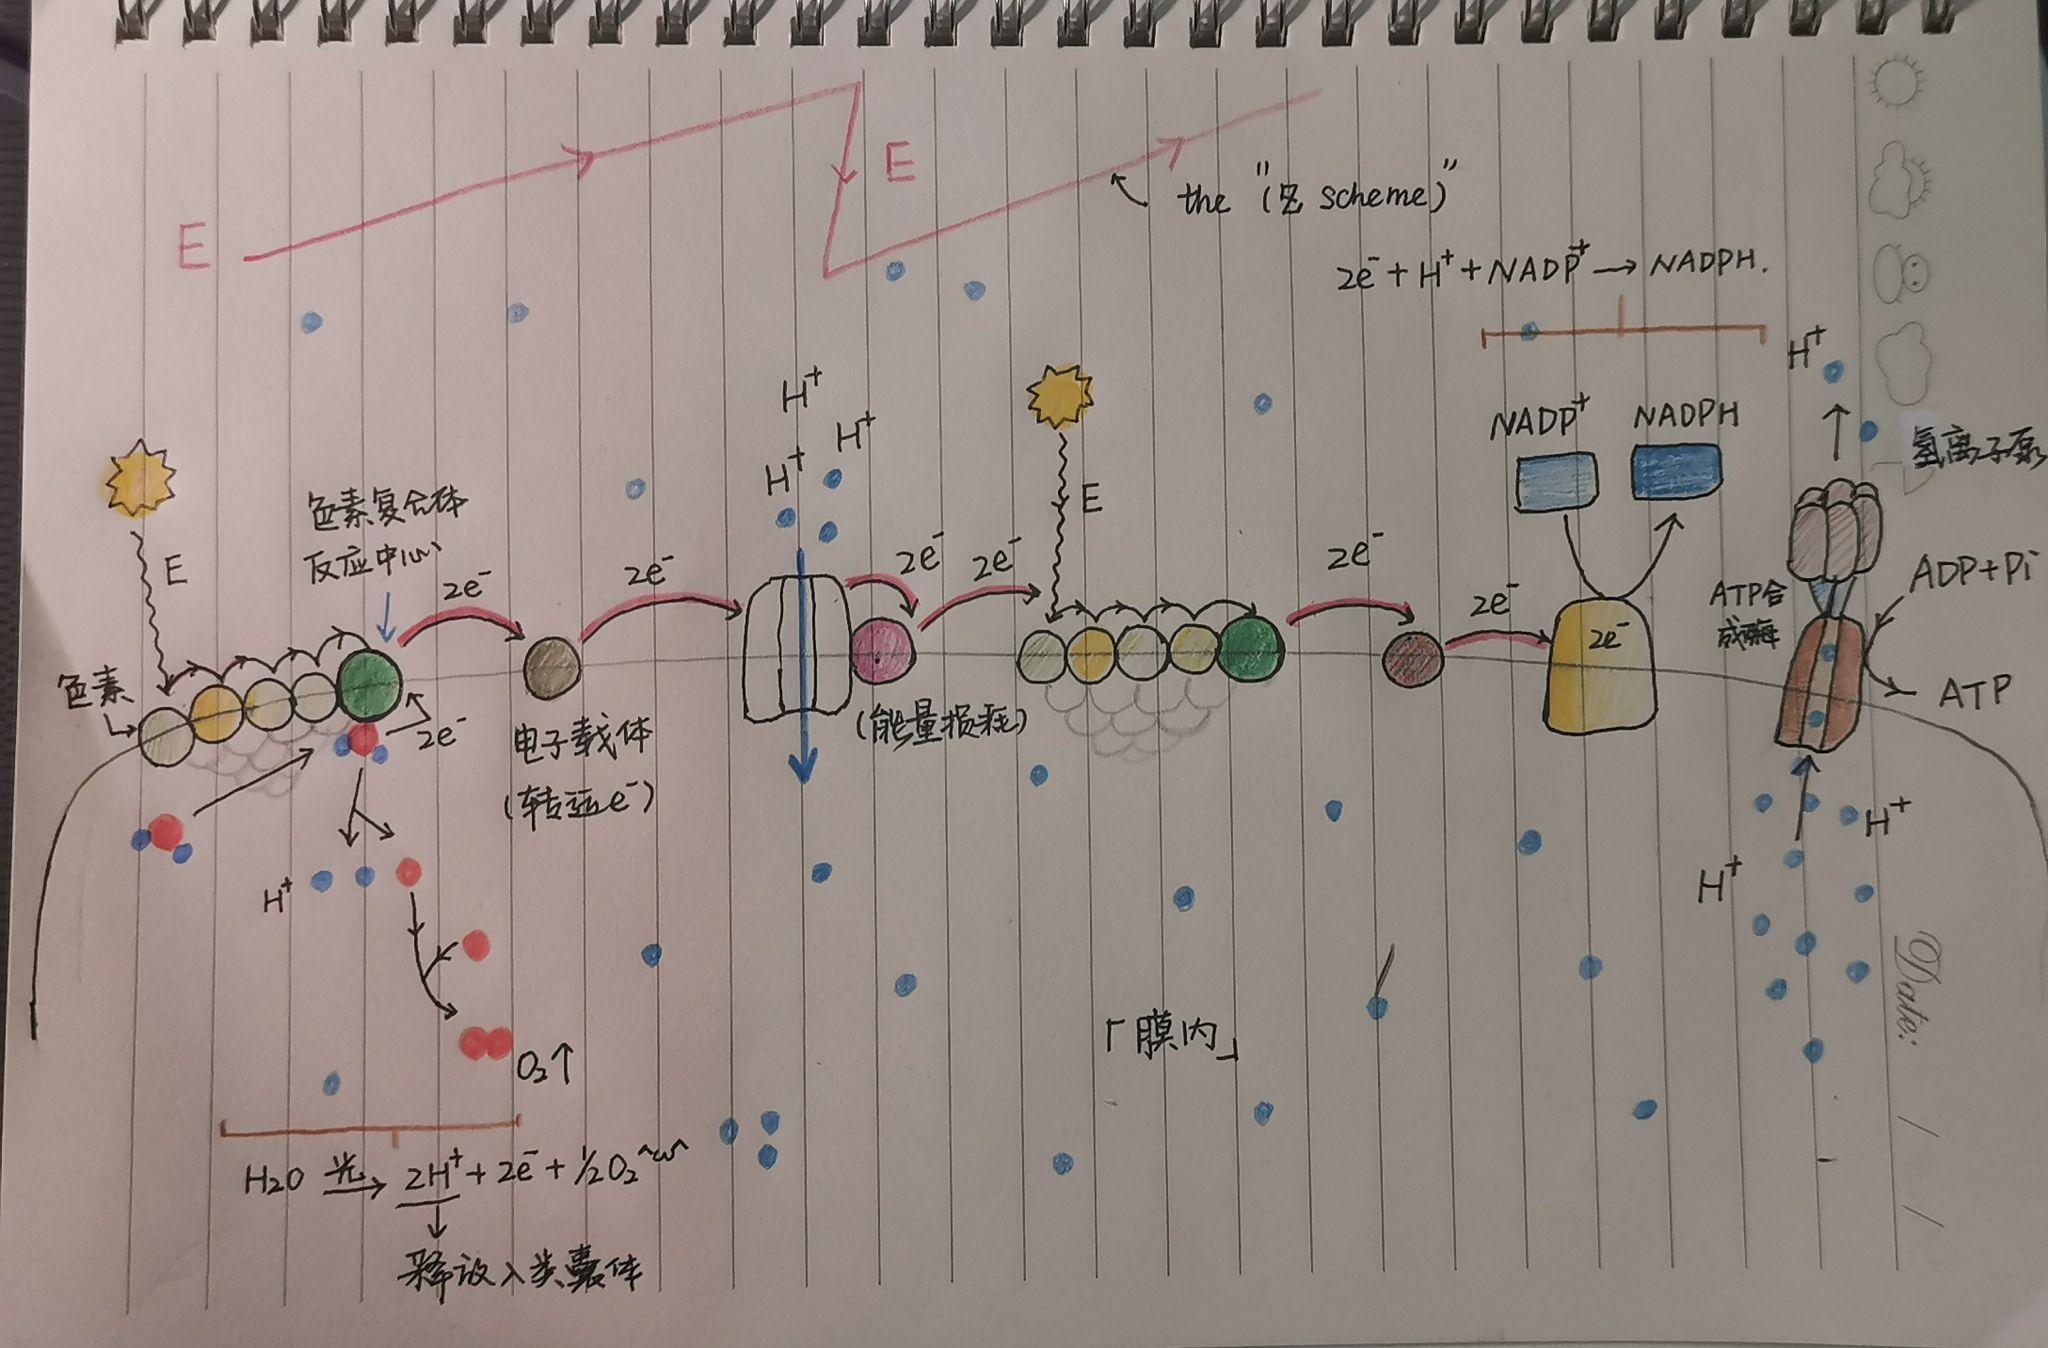 E
E
the "(Z scheme)"
2e⁻ + H⁺ + NADP⁺ → NADPH.
H⁺
H⁺
H⁺
H⁺
NADP⁺
NADPH
氢离子泵
E
E
色素复合体
反应中心
2e⁻
2e⁻
2e⁻
2e⁻
2e⁻
2e⁻
2e⁻
ADP+Pi
ATP合
成酶
ATP
色素
2e⁻
电子载体
(转运e⁻)
(能量损耗)
H⁺
H⁺
H⁺
O₂↑
「膜内」
H₂O 光→ 2H⁺ + 2e⁻ + 1/2O₂ ^ω^
↓
释放入类囊体
Date: / /